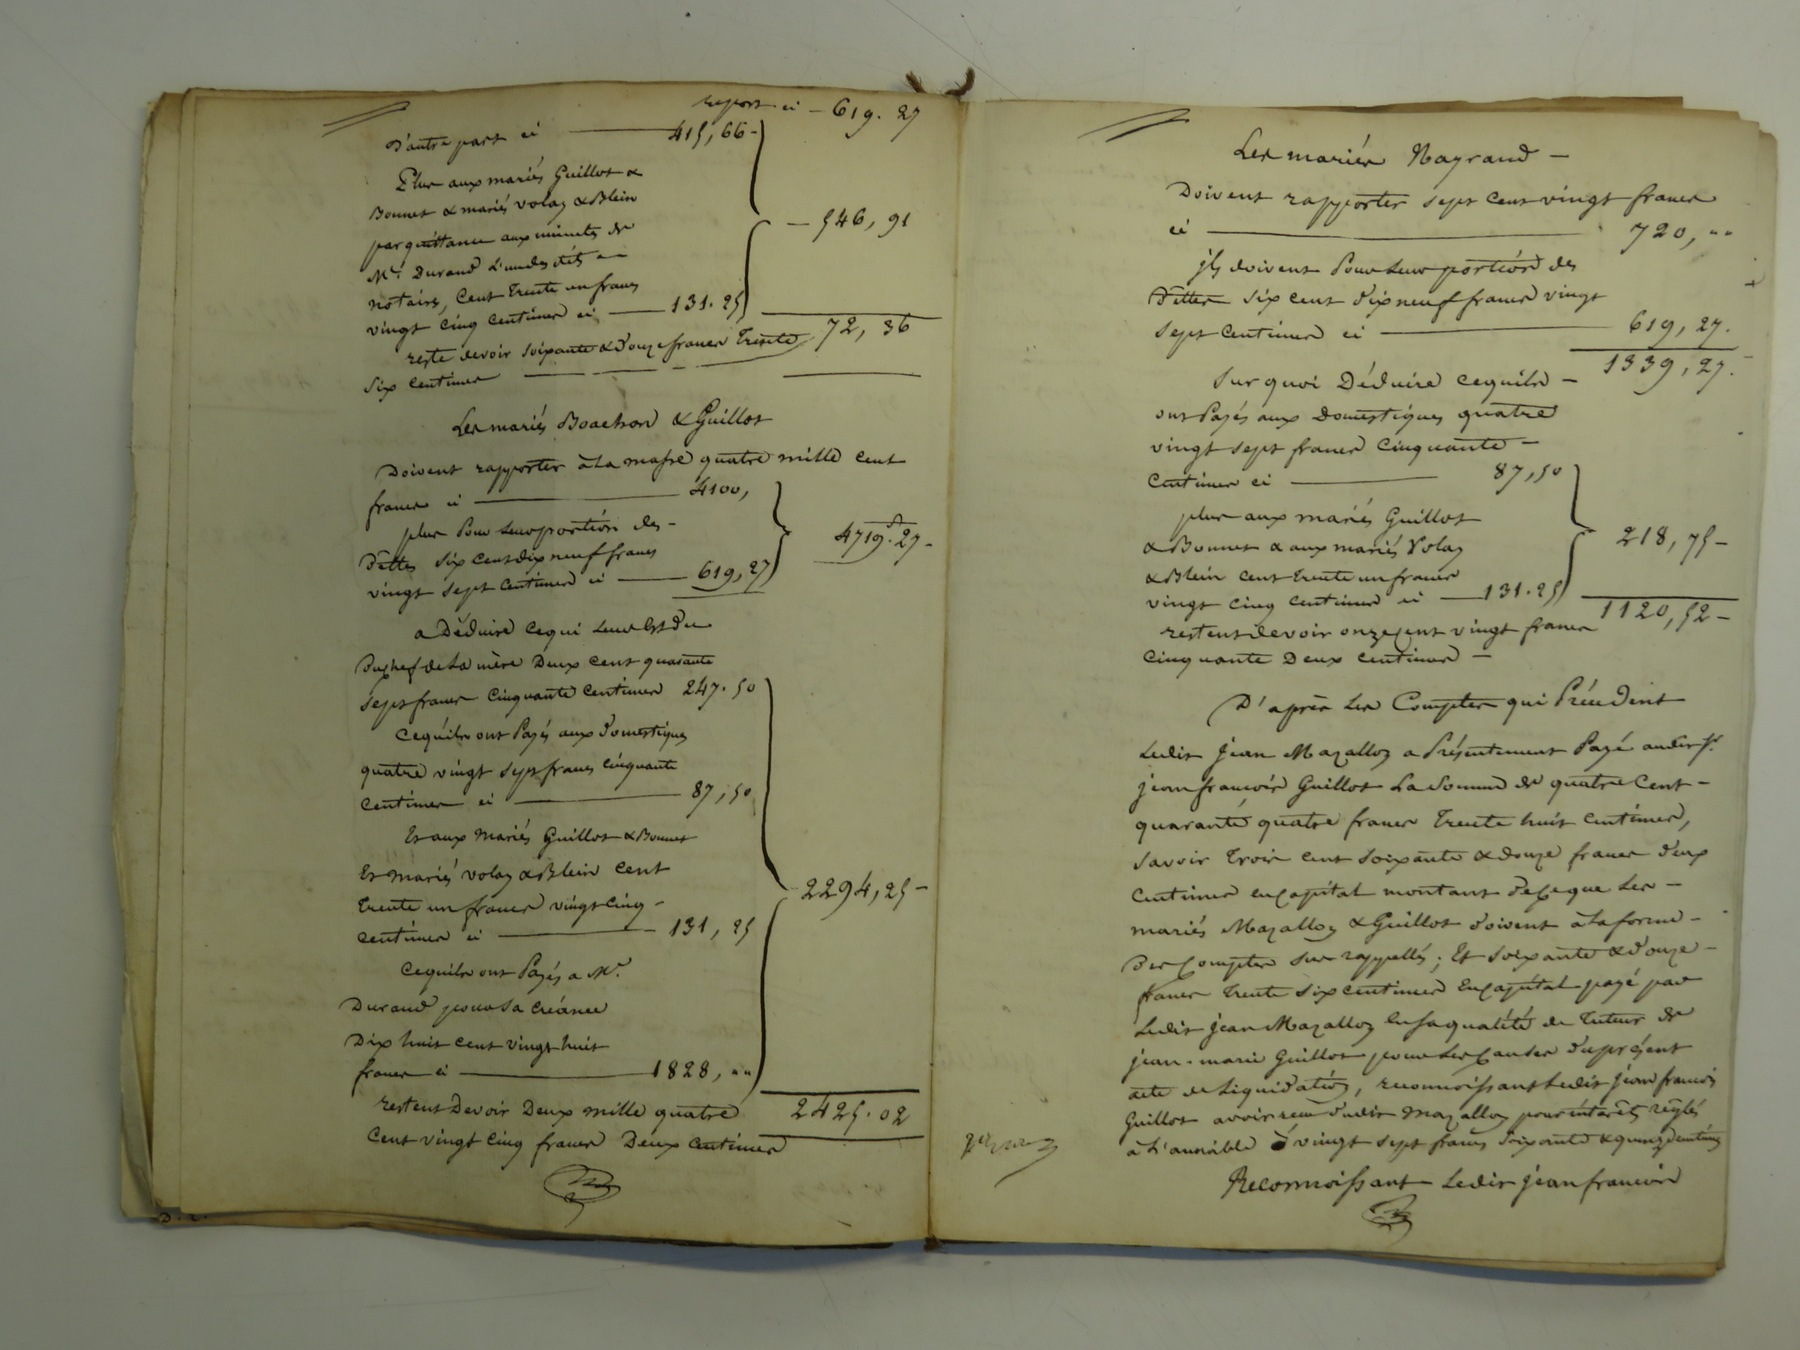 report ci — 619. 27
D'autre part ci — 415,66 -
Plus aux mariés Guillot &
Bonnet & mariés volay & Blein
par quittance aux minutes de
Mr. Durand L'un des dits
notaires, Cent trente un francs — 546, 91
vingt cinq Centimes ci — 131. 25
reste devoir soixante & douze francs trente 72, 36
six centimes
Les mariés Boachon & Guillot
Doivent rapporter à La masse quatre mille cent
francs ci — 4100,
plus Pour leur portion des -
Dettes six cent dix neuf francs 4719. 27 -
vingt sept Centimes ci — 619, 27
a Déduire ce qui Leur Est Du
Du chef de La mère Deux cent quarante
sept francs Cinquante Centimes 247. 50
ce qu'ils ont Payés aux domestiques
quatre vingt sept francs cinquante
Centimes ci — 87, 50
Et aux Mariés Guillot & Bonnet
Et Mariés volay & Blein Cent
trente un francs vingt Cinq - 2294, 25 -
centimes ci — 131, 25
ce qu'ils ont Payés a Mr.
Durand pour sa créance
Dix huit cent vingt huit
francs ci — 1828, ""
restent Devoir Deux mille quatre 2425. 02
Cent vingt Cinq francs Deux Centimes
Les mariés Nayrand —
Doivent rapporter sept Cent vingt francs
ci — 720, ""
ils doivent Pour Leur portion des
Dettes six cent dix neuf francs vingt
sept Centimes ci — 619, 27.
1339, 27.
sur quoi Déduire ce qu'ils —
ont Payés aux Domestiques quatre
vingt sept francs Cinquante —
Centimes ci — 87, 50
plus aux mariés Guillot
& Bonnet & aux mariés Volay 218, 75 -
& Blein cent trente un francs
vingt Cinq Centimes ci — 131. 25
restent devoir onze Cent vingt francs 1120, 52 -
Cinquante Deux centimes —
D'après Les Comptes qui Précèdent
Ledit Jean Mazalloy a Présentement Payé audit Sr.
jean françois Guillot La Somme de quatre Cent -
quarante quatre francs trente huit Centimes,
savoir trois cent soixante & douze francs deux
Centimes en Capital montant de Ce que Les —
mariés Mazalloy & Guillot doivent à La forme -
Des Comptes sus rappellés ; Et soixante & douze -
francs trente six centimes En Capital payé par
Ledit jean Mazalloy En sa qualité de tuteur de
jean-marie Guillot pour Les Causes du présent
acte de Liquidation, reconnoissant Ledit jean françois
Guillot avoir reçu dudit Mazalloy pour intérêts réglés
à L'amiable vingt sept francs soixante & quinze centimes
Reconnoissant Ledit jean françois